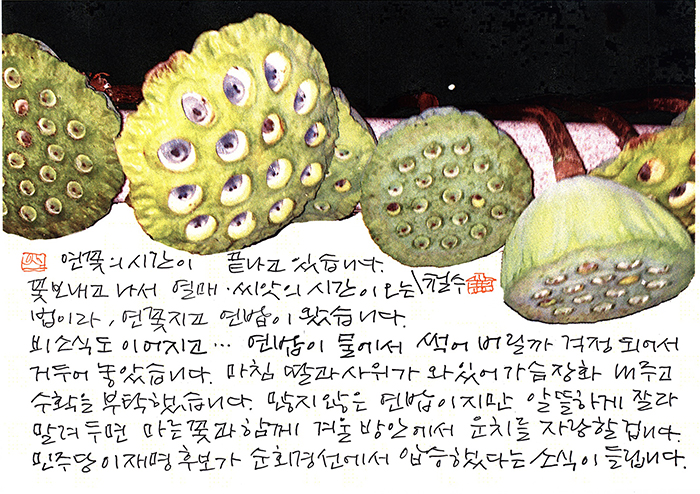 연꽃의 시간이 끝나고 있습니다.
꽃 보내고 나서 열매·씨앗의 시간이 오는 \철수
법이라, 연꽃지고 연밥이 왔습니다.
비소식도 이어지고... 연밥이 물에서 썩어 버릴까 걱정 되어서
거두어 놓았습니다. 마침 딸과 사위가 와 있어 가슴장화 내주고
수확을 부탁했습니다. 많지 않은 연밥이지만 알뜰하게 잘라
말려 두면 마른꽃과 함께 겨울 방안에서 운치를 자랑할 겁니다.
민주당 이재명 후보가 순회경선에서 압승했다는 소식이 들립니다.